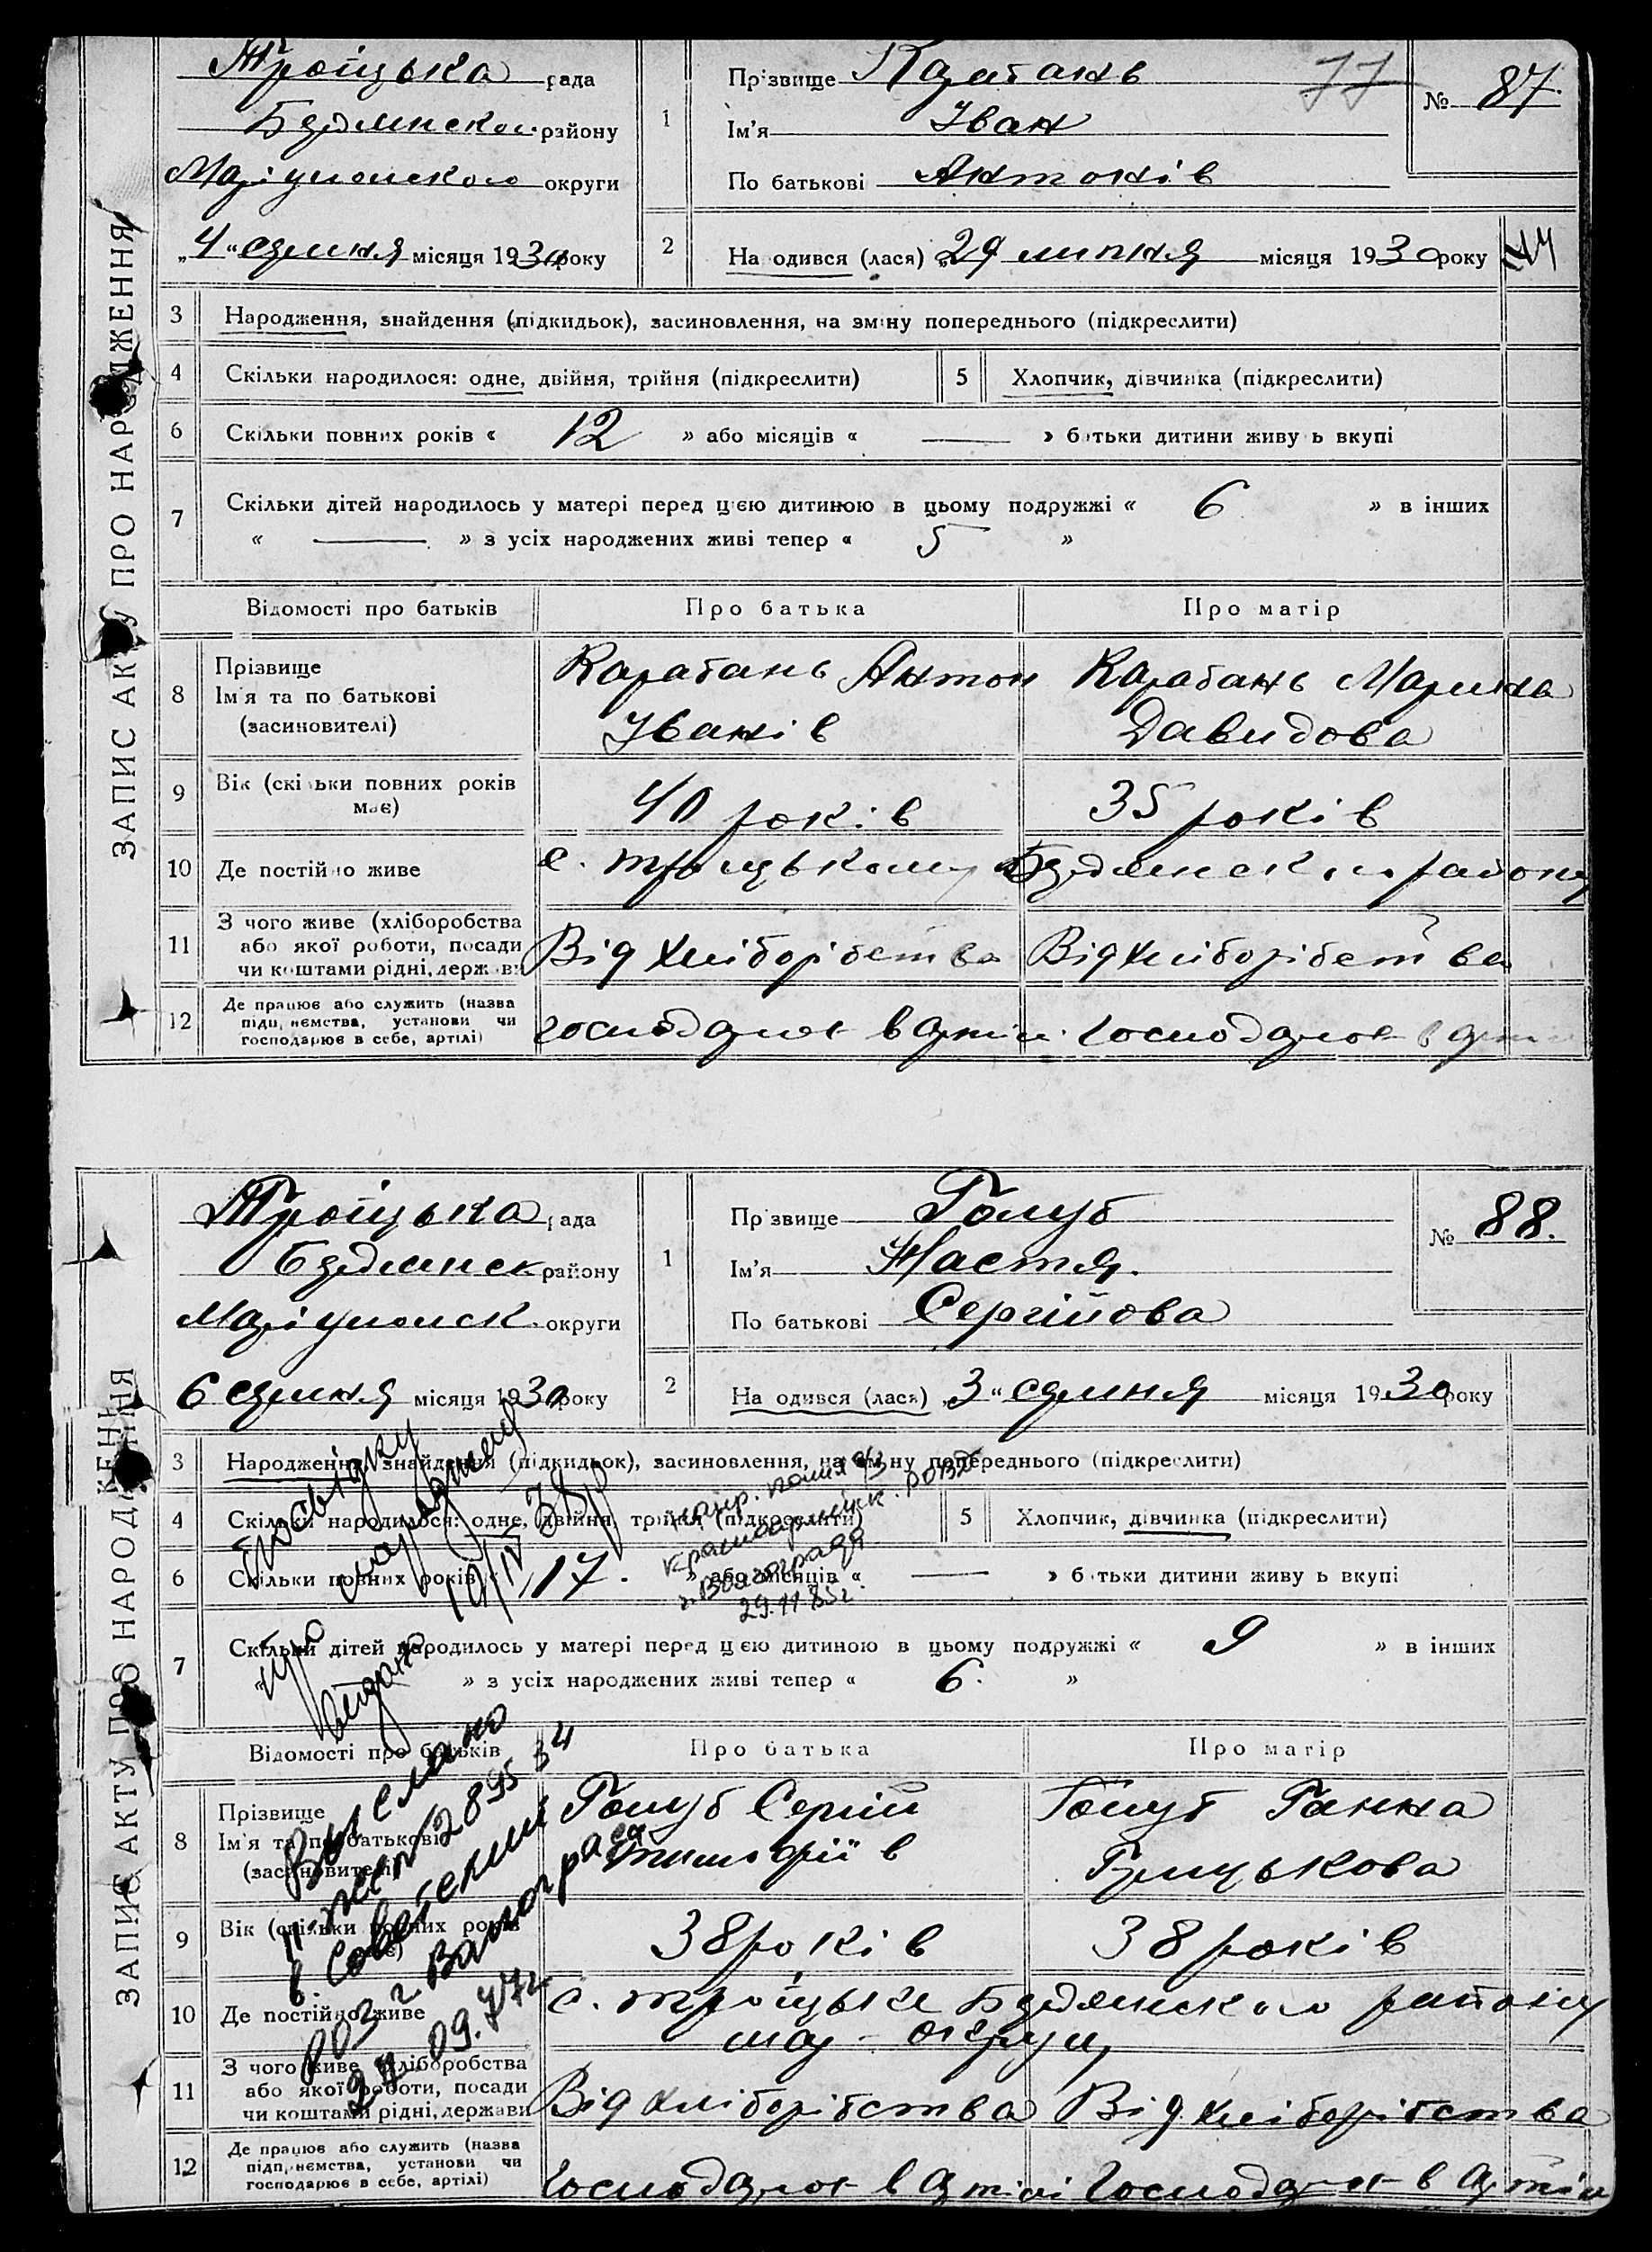 ЗАПИС АКТУ ПРО НАРОДЖЕННЯ
Троїцька рада
Бердянского району
Маріупольского округи
„4" серпня місяця 1930 року
1
Прізвище Карабань
Ім'я Іван
По батькові Антонів
77
№ 87.
2
Народився (лася) „29 липня місяця 1930 року
3 Народження, знайдення (підкидьок), засиновлення, на зміну попереднього (підкреслити)
4 Скільки народилося: одне, двійня, трійня (підкреслити)
5 Хлопчик, дівчинка (підкреслити)
6 Скільки повних років « 12 » або місяців « — » батьки дитини живуть вкупі
7 Скільки дітей народилось у матері перед цією дитиною в цьому подружжі « 6 » в інших
« — » з усіх народжених живі тепер « 5 »
Відомості про батьків Про батька Про матір
8 Прізвище Ім'я та по батькові (засиновителі)
Карабань Антон Іванів
Карабань Марина Давидова
9 Вік (скільки повних років має)
40 років
35 років
10 Де постійно живе
с. Троїцькому Бердянского району
11 З чого живе (хліборобства або якої роботи, посади чи коштами рідні, держави
Від хліборібства
Від хліборібства
12 Де працює або служить (назва підприємства, установи чи господарює в себе, артілі)
господарює в артілі
господарює в артілі
ЗАПИС АКТУ ПРО НАРОДЖЕННЯ
Троїцька рада
Бердянск району
Маріупольск. округи
6 серпня місяця 1930 року
1
Прізвище Голуб
Ім'я Настя.
По батькові Сергійова
№ 88.
2
Народився (лася) „3" серпня місяця 1930 року
3 Народження, знайдення (підкидьок), засиновлення, на зміну попереднього (підкреслити)
4 Скільки народилося: одне, двійня, трійня (підкреслити)
5 Хлопчик, дівчинка (підкреслити)
6 Скільки повних років « 17. » або місяців « — » батьки дитини живуть вкупі
7 Скільки дітей народилось у матері перед цією дитиною в цьому подружжі « 9 » в інших
« » з усіх народжених живі тепер « 6. »
Посвідку
про народження
видано 10/IV 38р
Красноармейск. РОВД
г. Волгограда
29.11.85г.
Выслано
28 95 34
в Советский
РОЗ г Волгограда
27.09.77г
Відомості про батьків Про батька Про матір
8 Прізвище Ім'я та по батькові (засиновителі)
Голуб Сергій Тимофіїв
Голуб Ганна Грицькова
9 Вік (скільки повних років має)
38 років
38 років
10 Де постійно живе
с. Троїцьке Бердянского району
мар- округи,
11 З чого живе (хліборобства або якої роботи, посади чи коштами рідні, держави
Від хліборібства
Від хліборібства
12 Де працює або служить (назва підприємства, установи чи господарює в себе, артілі)
господарює в артілі
господарює в артілі